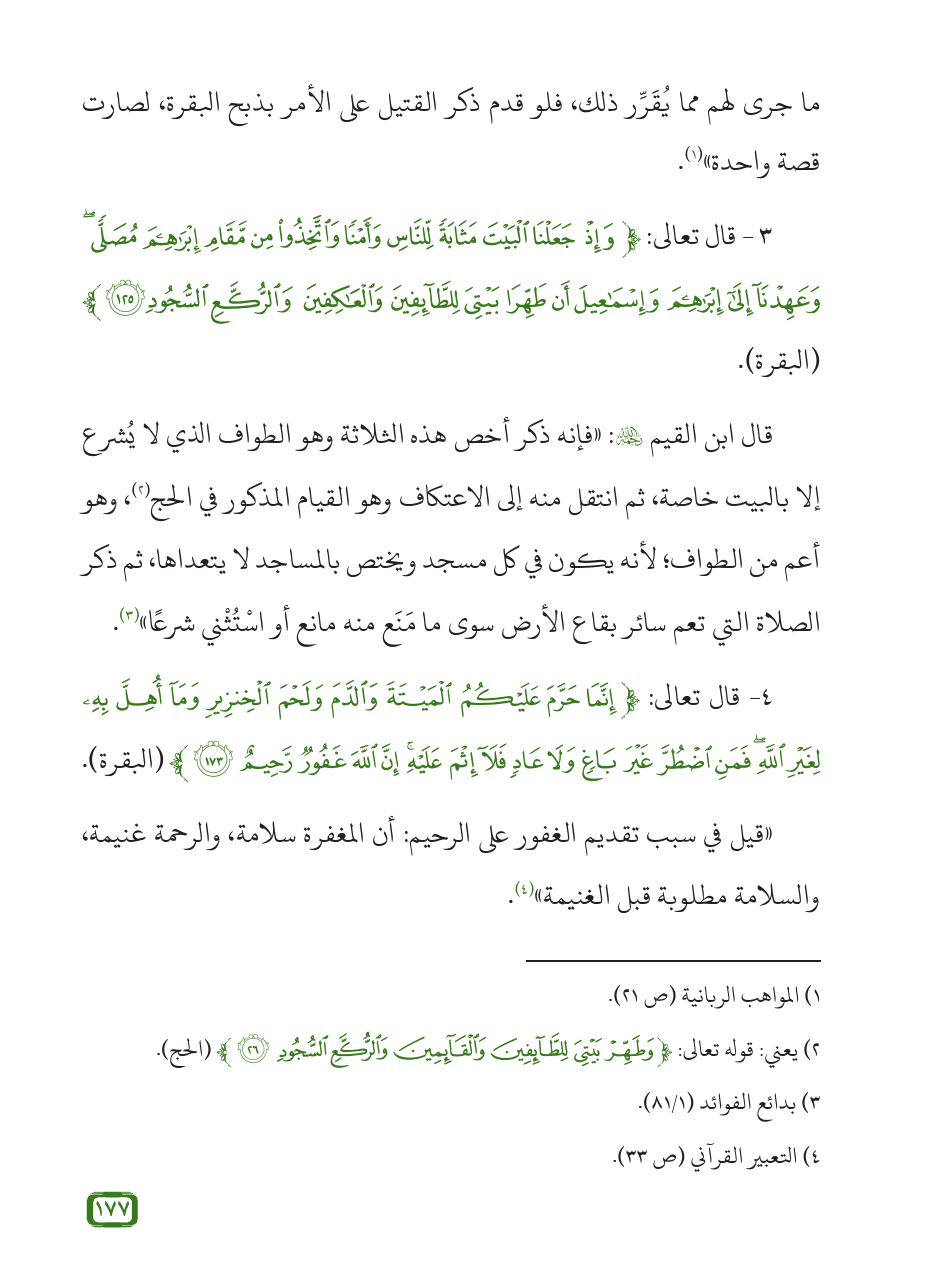 ما جرى لهم مما يُقَرِّر ذلك، فلو قدم ذكر القتيل على الأمر بذبح البقرة، لصارت
قصة واحدة»(١).
٣ - قال تعالى: ﴿ وَإِذۡ جَعَلۡنَا ٱلۡبَيۡتَ مَثَابَةٗ لِّلنَّاسِ وَأَمۡنٗا وَٱتَّخِذُواْ مِن مَّقَامِ إِبۡرَٰهِـۧمَ مُصَلّٗىۖ
وَعَهِدۡنَآ إِلَىٰٓ إِبۡرَٰهِـۧمَ وَإِسۡمَٰعِيلَ أَن طَهِّرَا بَيۡتِيَ لِلطَّآئِفِينَ وَٱلۡعَٰكِفِينَ وَٱلرُّكَّعِ ٱلسُّجُودِ ١٢٥ ﴾
(البقرة).
قال ابن القيم رحمه الله: «فإنه ذكر أخص هذه الثلاثة وهو الطواف الذي لا يُشرع
إلا بالبيت خاصة، ثم انتقل منه إلى الاعتكاف وهو القيام المذكور في الحج(٢)، وهو
أعم من الطواف؛ لأنه يكون في كل مسجد ويختص بالمساجد لا يتعداها، ثم ذكر
الصلاة التي تعم سائر بقاع الأرض سوى ما مَنَع منه مانع أو اسْتُثْني شرعًا»(٣).
٤- قال تعالى: ﴿ إِنَّمَا حَرَّمَ عَلَيۡكُمُ ٱلۡمَيۡتَةَ وَٱلدَّمَ وَلَحۡمَ ٱلۡخِنزِيرِ وَمَآ أُهِلَّ بِهِۦ
لِغَيۡرِ ٱللَّهِۖ فَمَنِ ٱضۡطُرَّ غَيۡرَ بَاغٖ وَلَا عَادٖ فَلَآ إِثۡمَ عَلَيۡهِۚ إِنَّ ٱللَّهَ غَفُورٞ رَّحِيمٌ ١٧٣ ﴾ (البقرة).
«قيل في سبب تقديم الغفور على الرحيم: أن المغفرة سلامة، والرحمة غنيمة،
والسلامة مطلوبة قبل الغنيمة»(٤).
١) المواهب الربانية (ص ٢١).
٢) يعني: قوله تعالى: ﴿ وَطَهِّرۡ بَيۡتِيَ لِلطَّآئِفِينَ وَٱلۡقَآئِمِينَ وَٱلرُّكَّعِ ٱلسُّجُودِ ٢٦ ﴾ (الحج).
٣) بدائع الفوائد (٨١/١).
٤) التعبير القرآني (ص ٣٣).
١٧٧